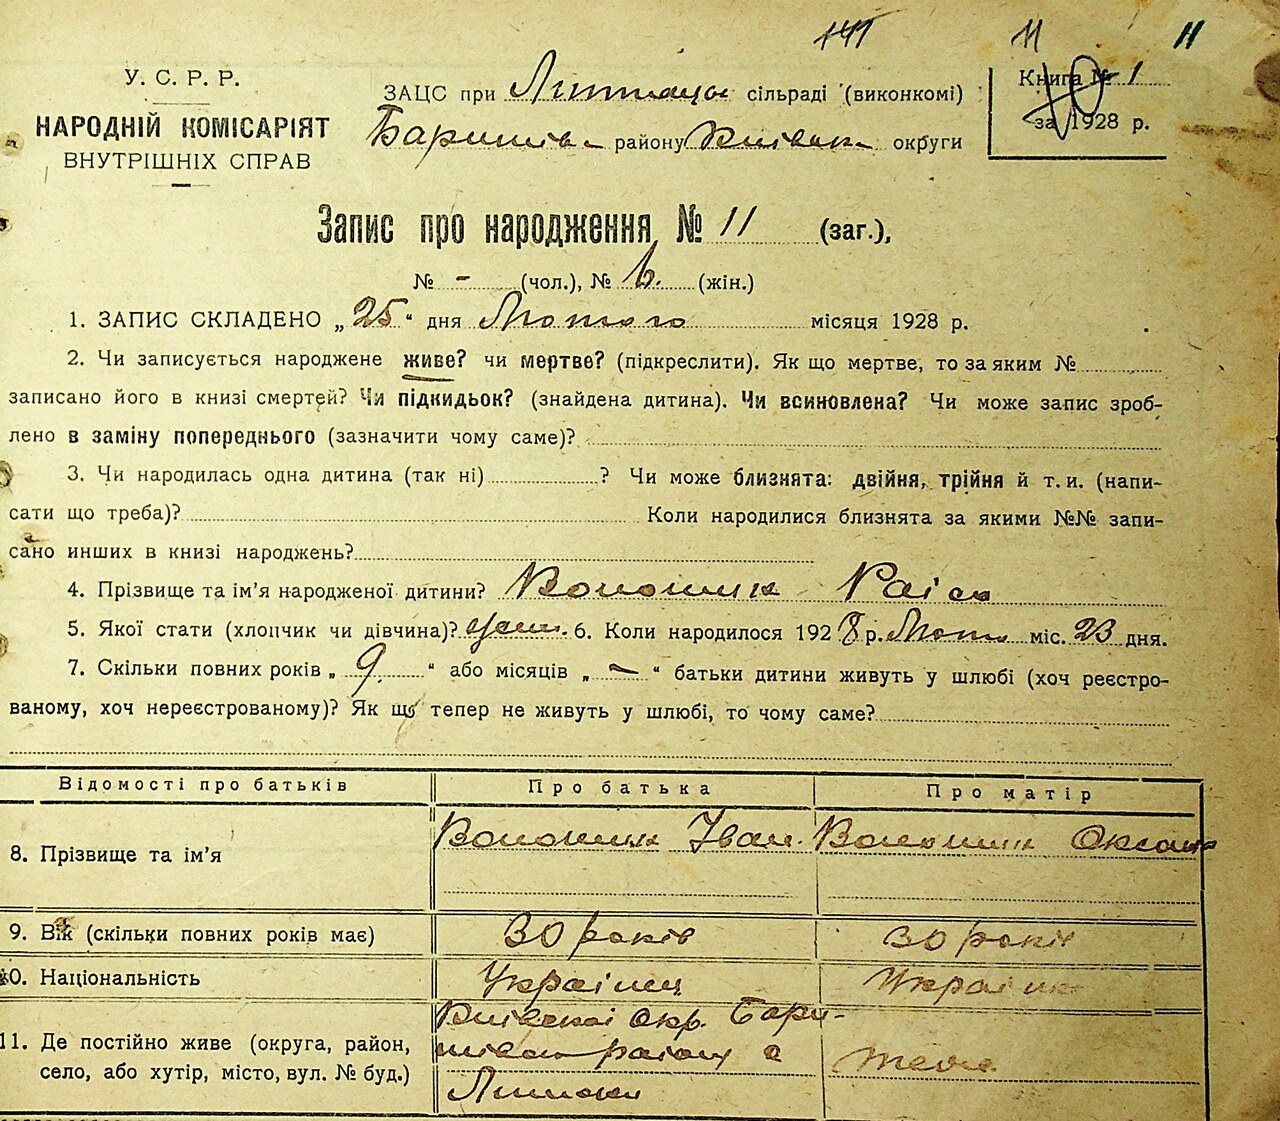 141 11 11
У. С. Р. Р.
НАРОДНІЙ КОМІСАРІЯТ
ВНУТРІШНІХ СПРАВ
ЗАЦС при сільраді (виконкомі)
Баришівс района Київськ округи
Книга № 1
10
за 1928 р.
Запис про народження № 11 (заг.),
№ - (чол.), № 6. (жін.)
1. ЗАПИС СКЛАДЕНО „25“ дня Лютого місяця 1928 р.
2. Чи записується народжене живе? чи мертве? (підкреслити). Як що мертве, то за яким №
записано його в книзі смертей? Чи підкидьок? (знайдена дитина). Чи всиновлена? Чи може запис зроб-
лено в заміну попереднього (зазначити чому саме)?
3. Чи народилась одна дитина (так ні) ? Чи може близнята: двійня, трійня й т. и. (напи-
сати що треба)? Коли народилися близнята за якими №№ запи-
сано инших в книзі народжень?
4. Прізвище та ім'я народженої дитини? Волошин Раіса
5. Якої стати (хлопчик чи дівчина)? жен. 6. Коли народилося 1928 р. Лют міс. 23 дня.
7. Скільки повних років „ 9 “ або місяців „ — “ батьки дитини живуть у шлюбі (хоч реєстро-
ваному, хоч нереєстрованому)? Як що тепер не живуть у шлюбі, то чому саме?
Відомості про батьків Про батька Про матір
8. Прізвище та ім'я Волошин Іван. Волошин Оксана
9. Вік (скільки повних років має) 30 років 30 років
10. Національність Українц Україн
11. Де постійно живе (округа, район,
село, або хутір, місто, вул. № буд.)
Київскоі Окр. Бари-
шівск району с
теж